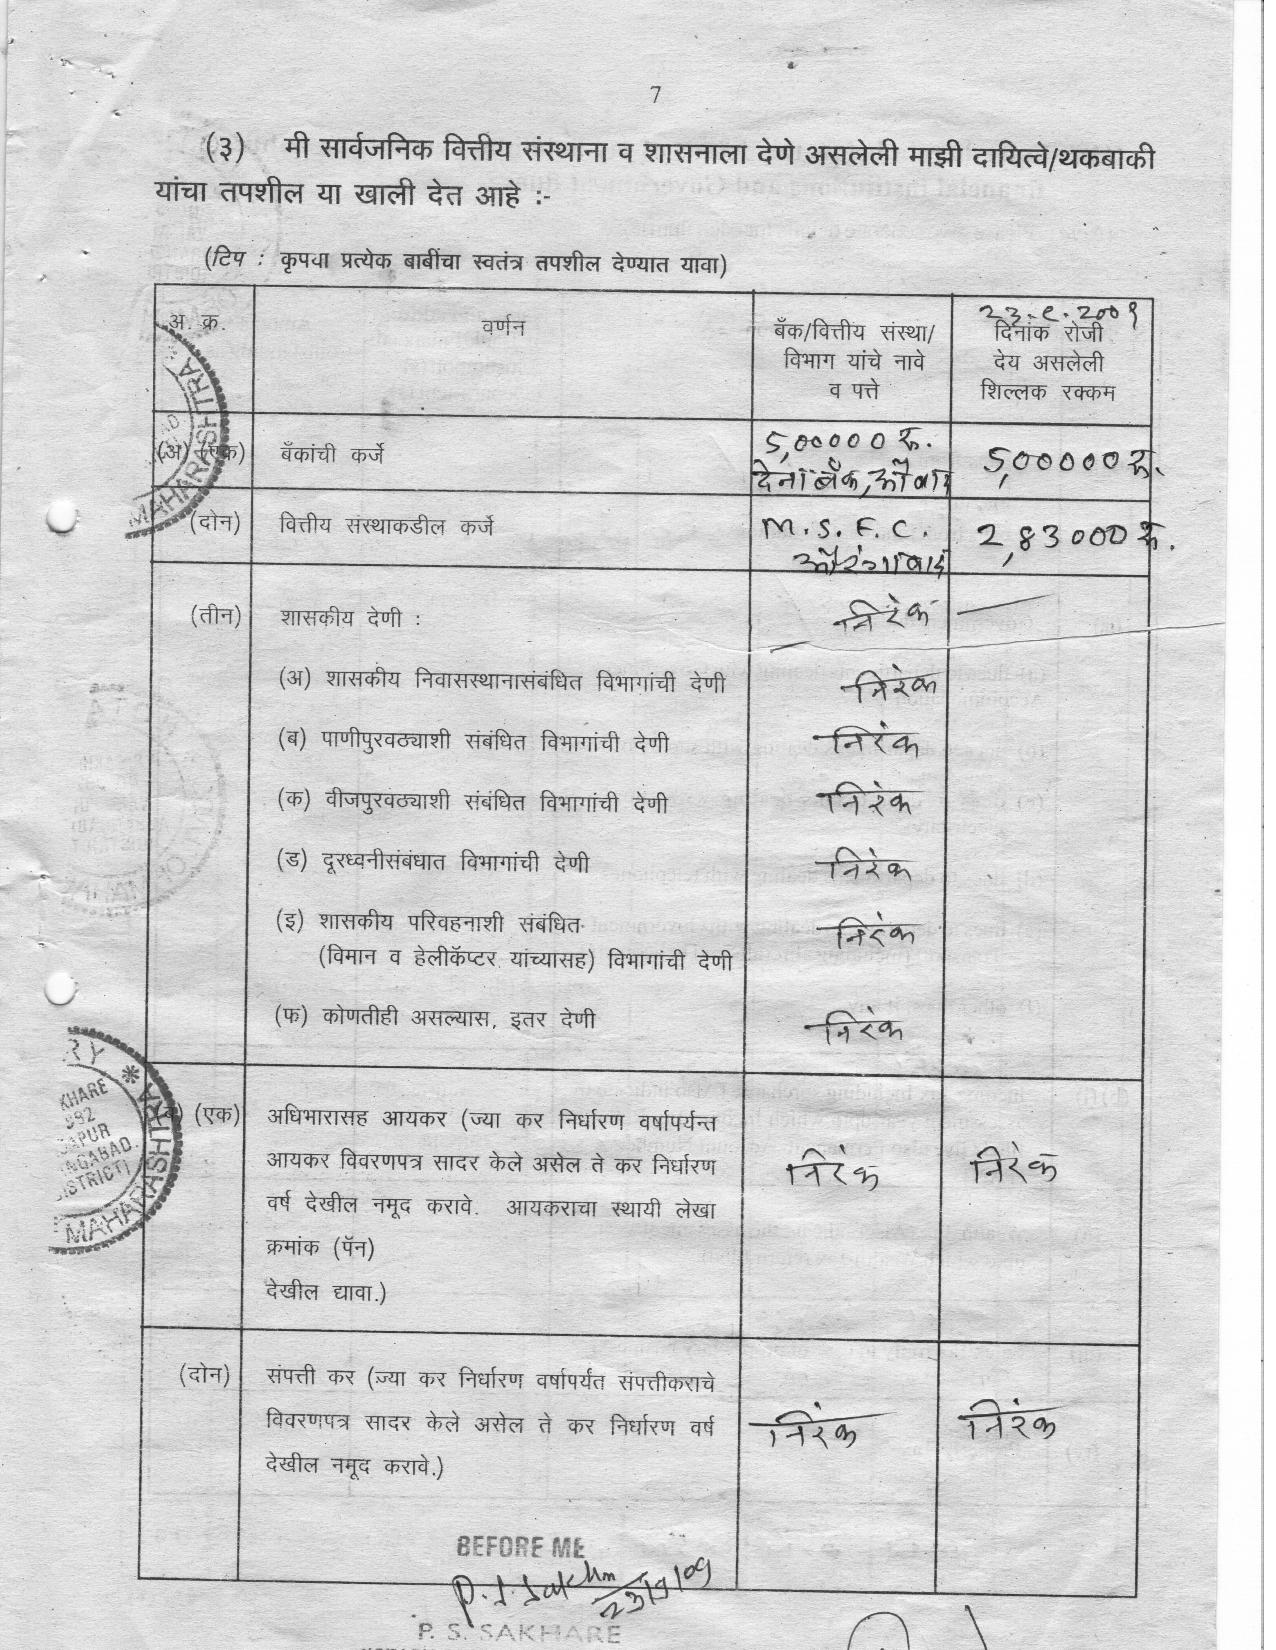 7
(३) मी सार्वजनिक वित्तीय संस्थाना व शासनाला देणे असलेली माझी दायित्वे/थकबाकी
यांचा तपशील या खाली देत आहे :-
(टिप : कृपया प्रत्येक बाबींचा स्वतंत्र तपशील देण्यात यावा)
अ. क्र.
वर्णन
बँक/वित्तीय संस्था/
विभाग यांचे नावे
व पत्ते
23.९.200९
दिनांक रोजी
देय असलेली
शिल्लक रक्कम
(अ) (एक)
बँकांची कर्जे
5,00000 रु.
देना बँक, औ बाद
5,00000 रु.
(दोन)
वित्तीय संस्थाकडील कर्जे
M.S.F.C.
औरंगाबाद
2,83000 रु.
(तीन)
शासकीय देणी :
निरंक
(अ) शासकीय निवासस्थानासंबंधित विभागांची देणी
निरंक
(ब) पाणीपुरवठ्याशी संबंधित विभागांची देणी
निरंक
(क) वीजपुरवठ्याशी संबंधित विभागांची देणी
निरंक
(ड) दूरध्वनीसंबंधात विभागांची देणी
निरंक
(इ) शासकीय परिवहनाशी संबंधित
(विमान व हेलीकॅप्टर यांच्यासह) विभागांची देणी
निरंक
(फ) कोणतीही असल्यास, इतर देणी
निरंक
(ब) (एक)
अधिभारासह आयकर (ज्या कर निर्धारण वर्षापर्यन्त
आयकर विवरणपत्र सादर केले असेल ते कर निर्धारण
वर्ष देखील नमूद करावे. आयकराचा स्थायी लेखा
क्रमांक (पॅन)
देखील द्यावा.)
निरंक
निरंक
(दोन)
संपत्ती कर (ज्या कर निर्धारण वर्षापर्यंत संपत्तीकराचे
विवरणपत्र सादर केले असेल ते कर निर्धारण वर्ष
देखील नमूद करावे.)
निरंक
निरंक
MAHARASHTRA
MAHARASHTRA
DISTRICT
BEFORE ME
P. S. Sakhare
23/9/09
P. S. SAKHARE